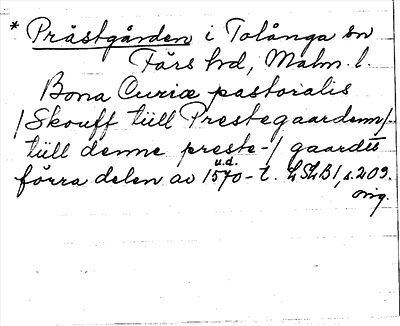 * Prästgården i Tolånga sn
Färs hd, Malm. l.
Bona Curiæ pastoralis
/Skouff tüll Prestegaardenn/
tüll denne preste-/gaardtt
u.d.
förra delen av 1570-t. LSLB1, s. 209.
orig.